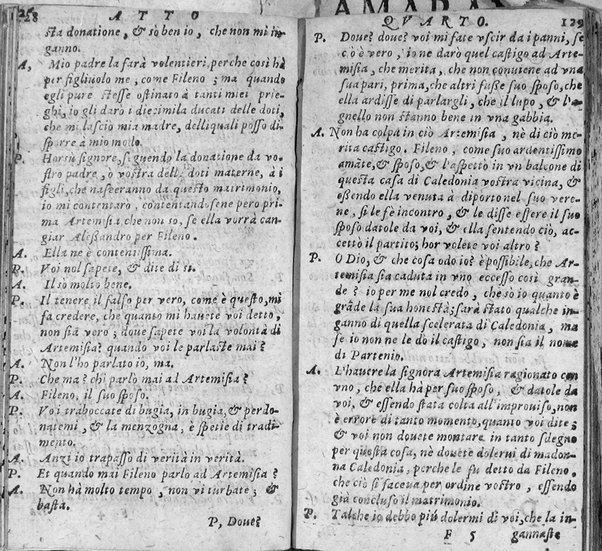 128
ATTO
sta donatione, & sò ben io, che non mi in-
ganno.
A, Mio padre la farà volentieri, perche così hà
per figliuolo me, come Fileno; ma quando
egli pure stesse ostinato à tanti miei prie-
ghi, io gli darò i diezimila ducati delle doti,
che mi lasciò mia madre, delli quali posso di-
sporre à mio modo.
P. Horsù signore, seguendo la donatione da vo-
stro padre, ò vostra delle doti materne, à i
figli, che nasceranno da questo matrimonio,
io mi contentarò, contentandosene però pri-
ma Artemisia, che non sò, se ella vorrà can-
giar Alessandro per Fileno.
A. Ella ne è contentissima.
P. Voi nol sapete, & dite di si.
A. Il sò molto bene.
P. Il tenere il falso per vero, come è questo, mi
fa credere, che quanto mi havete voi detto,
non sia vero; dove sapete voi la volontà di
Artemisia? quando voi le parlaste mai?
A. Non l'ho parlato io, ma.
P. Che ma? chi parlò mai ad Artemisia?
A. Fileno, il suo sposo.
P. Voi traboccate di bugia, in bugia, & perdo-
natemi, & la menzogna, è spetie di tradi-
mento.
A. Anzi io trapasso di verità in verità.
P. Et quando mai Fileno parlò ad Artemisia?
A. Non hà molto tempo, non vi turbate; &
basta.
P, Dove?
QVARTO.
129
P. Dove? dove? voi mi fate vscir da i panni, se
ciò è vero, io ne darò quel castigo ad Arte-
misia, che merita, che non conviene ad vna
sua pari, prima, che altri fusse suo sposo, che
ella ardisse di parlargli, che il lupo, & l'a-
gnello non stanno bene in vna gabbia.
A. Non ha colpa in ciò Artemisia, nè di ciò me-
rita castigo. Fileno, come suo ardentissimo
amāte, & sposo, & l'aspettò in vn balcone di
questa casa di Caledonia vostra vicina, &
essendo ella venuta à diporto nel suo vero-
ne, si le fè incontro, & le disse essere il suo
sposo datole da voi, & ella sentendo ciò, ac-
cettò il partito; hor volete voi altro?
P. O Dio, & che cosa odo io? è possibile, che Ar-
temisia sia caduta in vno eccesso così gran-
de? io per me nol credo, che sò io quanto è
grāde la sua honestà; sarà stato qualche in-
ganno di quella scelerata di Caledonia, ma
se io non ne le dò il castigo, non sia il nome
di Partenio.
A. L'havere la signora Artemisia ragionato con
vno, che ella hà per suo sposo, & datole da
voi, & essendo stata colta all'improviso, non
è errore di tanto momento, quanto voi dite;
& voi non dovete montare in tanto sdegno
per questa cosa, nè dovete dolervi di madon-
na Caledonia, perche le fu detto da Fileno,
che ciò si faceva per ordine vostro, essendo
già concluso il matrimonio.
P. Talche io debbo più dolermi di voi, che la in-
F 5
gannaste